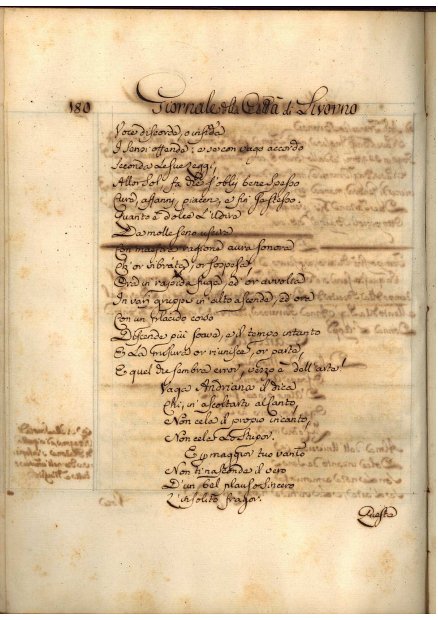 180 Giornale della Città di Livorno
Voce discorde, o insida
I sensi offende; e se con vago accordo
Seconda le sue leggi,
Allor sol fa che s' oblij bene spesso
Cure, affanni, piacere, e fin' se stesso.
Quanto è dolce l' udire
Da molle seno uscire
Con maestra ragione aura sonora
Ch' or vibrata, or sospesa,
Ora in rapida fuga, ed or avvolta
In varj gruppi in alto ascende, ed ora
Con un placido corso
Discende più soave, e il tempo intanto
E la misura or riunisce, or parte,
E quel che sembra error, vezzo è dell' arte!
Vaga Andriana il dica
Chi, in' ascoltarti al canto,
Non cela il proprio incanto,
Non cela lo stupor.
E il maggior tuo vanto
Non ti nasconde il vero
D' un bel plauso sincero
L' insolito fragor.
Questa